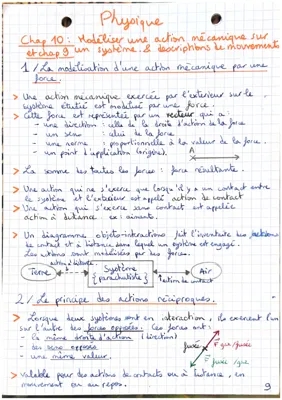 Physique
Chap 10: Modéliser une action mécanique sur
et chap 9 un système. & descriptions de mouvements
1/ La modélisation d'une action mécanique par une
force.
> Une action mécanique exercée par l'extérieur sur le
système étudié est modélisé par une force.
> Cette force est représentée par un vecteur qui a
- une direction : celle de la droite d'action de la force
- un sens : celui de la force
- une norme : proportionnelle à la valeur de la force.
- un point d'application (origine). A
> La somme des toutes les forces : force résultante.
> Une action qui ne s'exerce que lorsqu'il y a un contact entre
le système et l'extérieur est appelé action de contact
> Une action qui s'exerce sans contact est appelée
action à distance. ex : aimant.
> Un diagramme objets-interactions fait l'inventaire des actions
de contact et à distance dans lequel un système est engagé.
Les actions sont modélisées par des forces.
action à distance
Terre Système (parachutiste) Air
action de contact
2/ Le principe des actions réciproques.
> Lorsque deux systèmes sont en interaction, ils exercent l'un
sur l'autre des forces opposées. Ces forces ont :
- la même droite d'action (direction)
- des sens opposés
- une même valeur.
fusée F gaz/fusée
F fusée/gaz
> Valable pour des actions de contacts ou à distance, en
mouvement ou au repos.
9